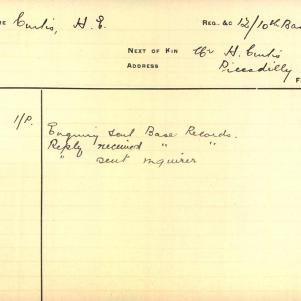 Curtis, H. E. REG. &C 12/10th Ba
NEXT OF KIN Mr H. Curtis
ADDRESS Piccadilly
1/P. Enquiry sent Base Records.
Reply received " "
" sent inquirer